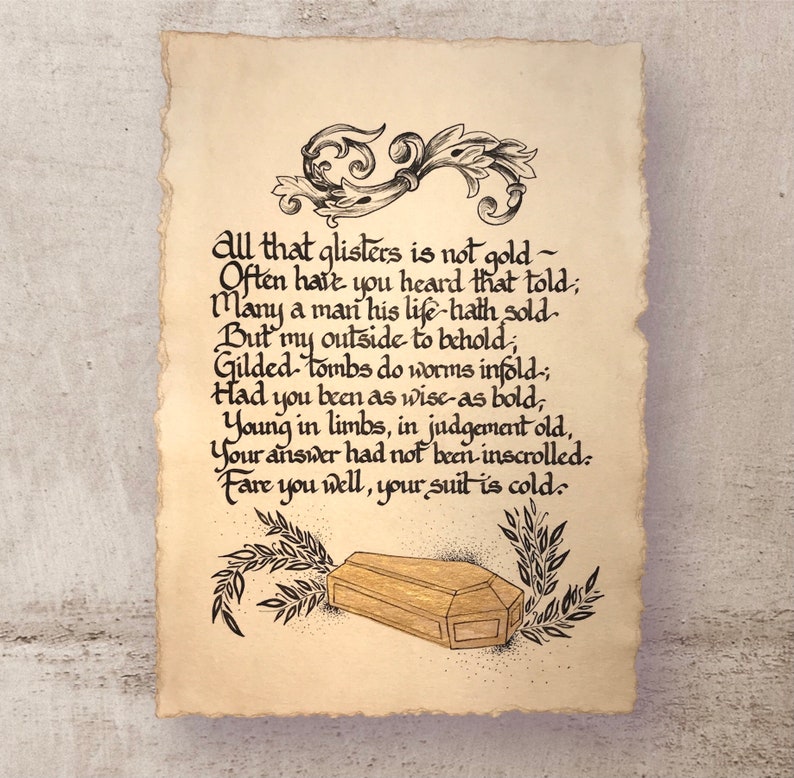 All that glisters is not gold~
Often have you heard that told;
Many a man his life hath sold
But my outside to behold;
Gilded tombs do worms infold;
Had you been as wise as bold,
Young in limbs, in judgement old,
Your answer had not been inscrolled.
Fare you well, your suit is cold.